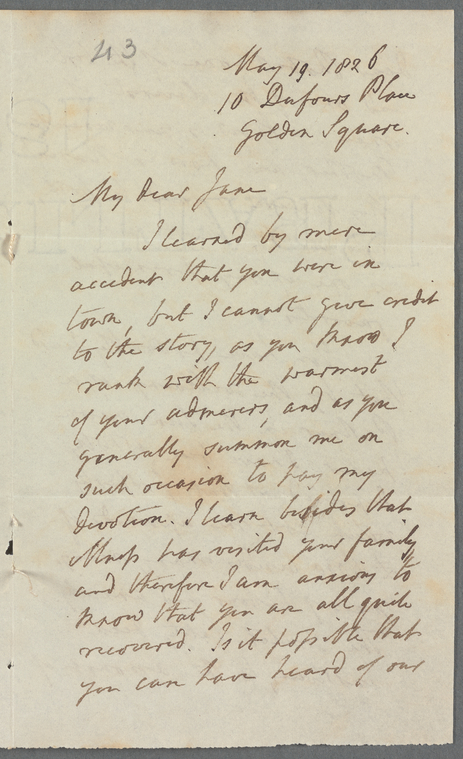 43
May 19. 1826
10 Dufours Place
Golden Square.
My Dear Jane
I learned by mere
accident that you were in
town, but I cannot give credit
to the story, as you know I
rank with the warmest
of your admirers, and as you
generally summon me on
such occasion to pay my
Devotion. I learn besides that
illness has visited your family,
and therefore I am anxious to
know that you are all quite
recovered. Is it possible that
you can have heard of our